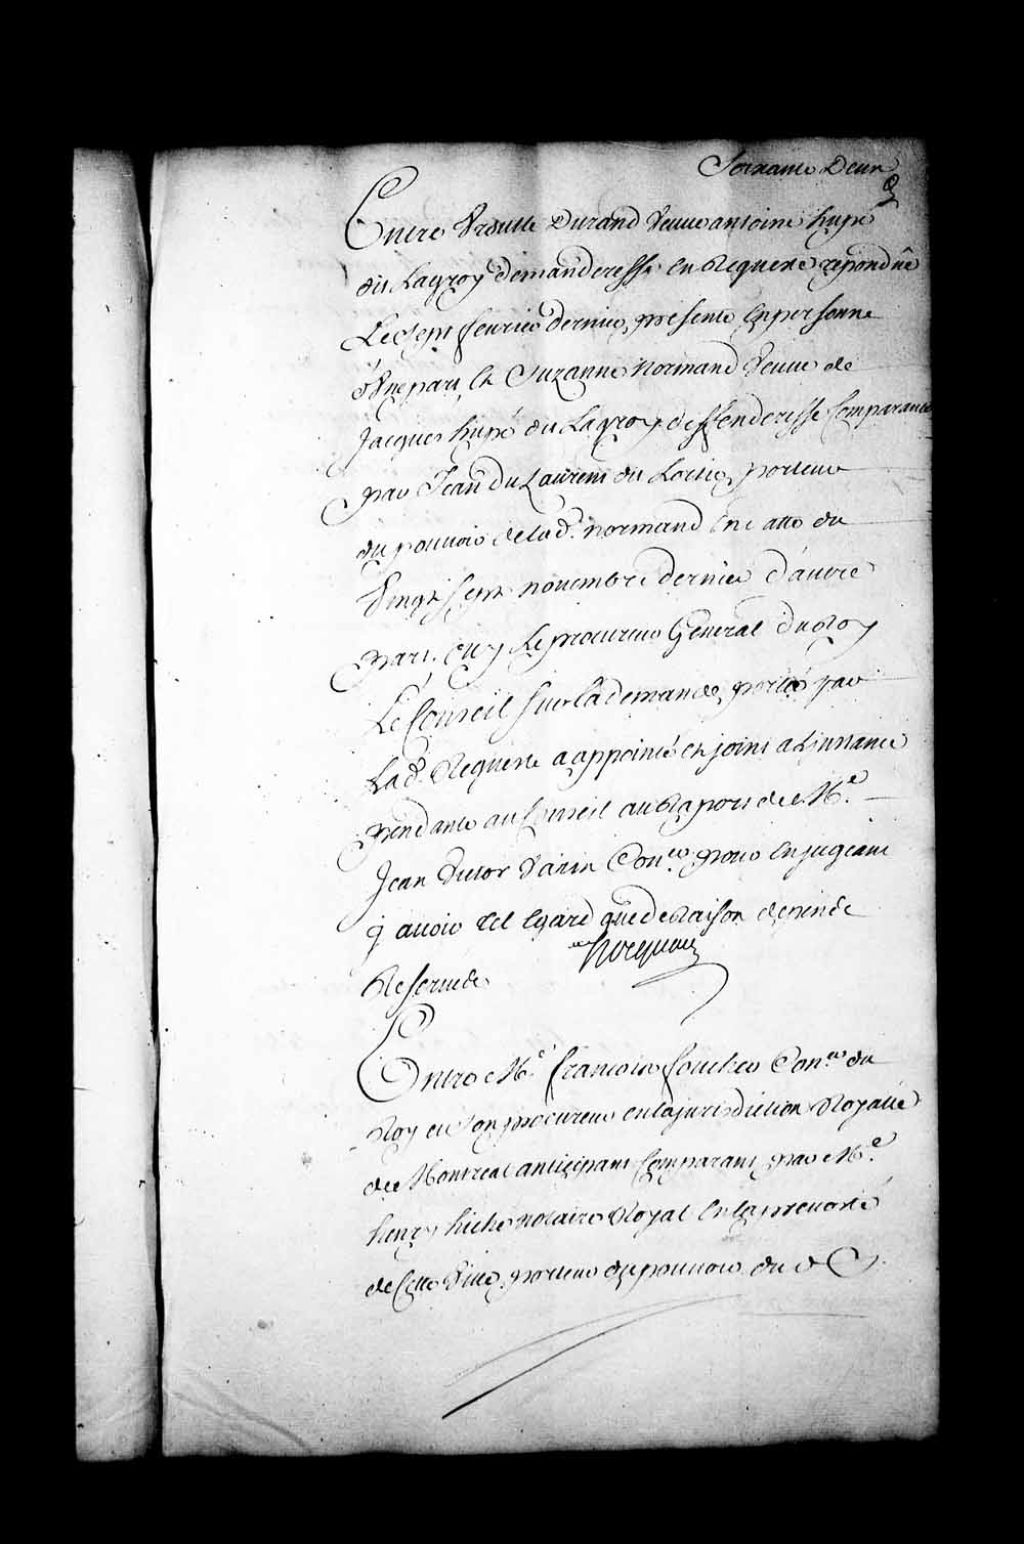 Soixante Deux
Entre Ursulle Durand Veuve antoine hupé
dit Lagroy demanderesse En Requeste repondüe
Le Sept fevrier dernier, presente En personne
d'Une part, Et Suzanne Normand Veuve de
Jacques hupé dit Lagroy deffenderesse Comparante
par Jean du Laurent dit Lortie, porteur
du pouvoir de lad. Normand En datte du
Vingt Sept novembre dernier d'autre
part. Ouy Le procureur General du Roy
Le Conseil Sur la demande, portée par
Lad. Requeste a appointé et joint a L'instance
pendante au Conseil au Raport de Me.
Jean Victor Varin Coner. pour En jugeant
y avoir tel Egard que de Raison depends
Reservés
hocquart
Entre Me. francois foucher Coner. du
Roy et Son procureur en la jurisdiction Royalle
de Montreal anticipant Comparant, par Me.
henry hiché notaire Royal En la prevosté
de Cette Ville, porteur de pouvoir du d S.